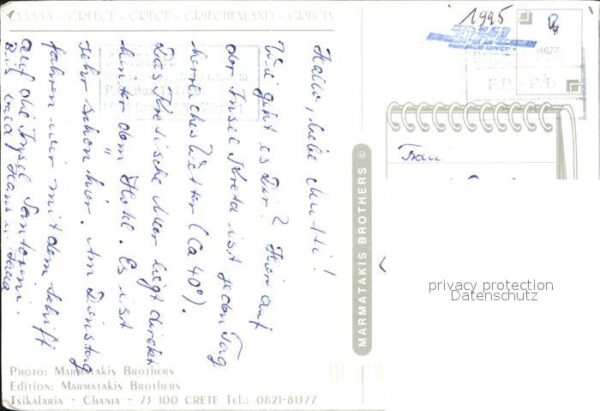 ΕΛΛΑΔΑ - GREECE - GRECE - GRIECHENLAND - GRECIA
Hallo, liebe Mutti!
Wie geht es Dir? Hier auf
der Insel Kreta ist jeden Tag
herrliches Wetter (Ca 40°).
Das Kretische Meer liegt direkt
hinter dem Hotel. Es ist
sehr schön hier. Am Dienstag
fahren wir mit dem Schiff
auf die Insel Santorini.
Bis bald Hans u.
PHOTO: MARMATAKIS BROTHERS
Edition: MARMATAKIS BROTHERS
Tsikalaria - Chania - 73 100 CRETE Tel.: 0821-81377
MARMATAKIS BROTHERS ©
1995
DHL
1677
P.P. - P.B.
Frau
privacy protection
Datenschutz